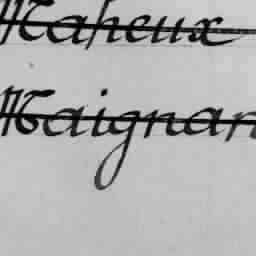 Maheux
Maignan